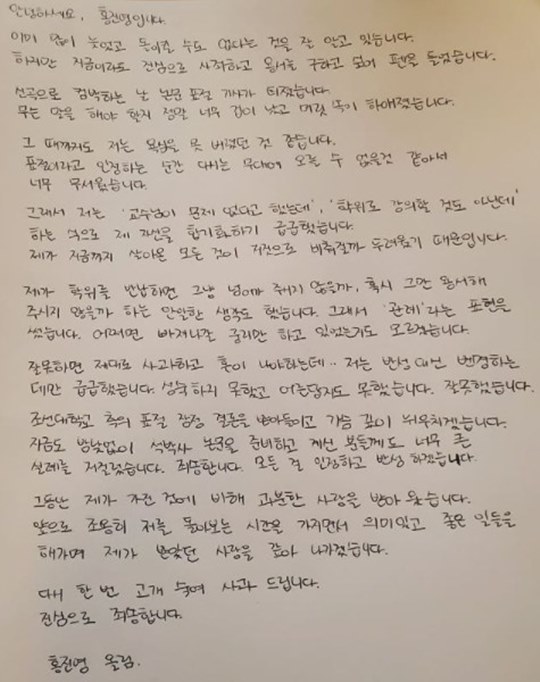 안녕하세요, 홍진영입니다.
이미 많이 늦었고 돌이킬 수도 없다는 것을 잘 알고 있습니다.
하지만 지금이라도 진심으로 사죄하고 용서를 구하고 싶어 펜을 들었습니다.
신곡으로 컴백하는 날 논문 표절 기사가 터졌습니다.
무슨 말을 해야 할지 정말 너무 겁이 났고 머릿속이 하얘졌습니다.
그 때까지도 저는 욕심을 못 버렸던 것 같습니다.
표절이라고 인정하는 순간 다시는 무대에 오를 수 없을것 같아서
너무 무서웠습니다.
그래서 저는 '교수님이 문제 없다고 했는데', '학위로 강의할 것도 아닌데'
하는 식으로 제 자신을 합리화하기 급급했습니다.
제가 지금까지 살아온 모든 것이 거짓으로 비춰질까 두려웠기 때문입니다.
제가 학위를 반납하면 그냥 넘어가 주시지 않을까, 혹시 그만 용서해
주시지 않을까 하는 안일한 생각도 했습니다. 그래서 '관례'라는 표현을
썼습니다. 어쩌면 빠져나갈 궁리만 하고 있었는지도 모르겠습니다.
잘못하면 제대로 사과하고 혼이 나야하는데.. 저는 반성 대신 변명하는
데만 급급했습니다. 성숙하지 못했고 어른답지도 못했습니다. 잘못했습니다.
조선대학교 측의 표절 잠정 결론을 받아들이고 가슴 깊이 뉘우치겠습니다.
지금도 밤낮없이 석박사 논문을 준비하고 계신 분들께도 너무 큰
실례를 저질렀습니다. 죄송합니다. 모든 걸 인정하고 반성 하겠습니다.
그동안 제가 가진 것에 비해 과분한 사랑을 받아 왔습니다.
앞으로 조용히 저를 돌아보는 시간을 가지면서 의미있고 좋은 일들을
해가며 제가 받았던 사랑을 갚아 나가겠습니다.
다시 한 번 고개 숙여 사과 드립니다.
진심으로 죄송합니다.
홍진영 올림.